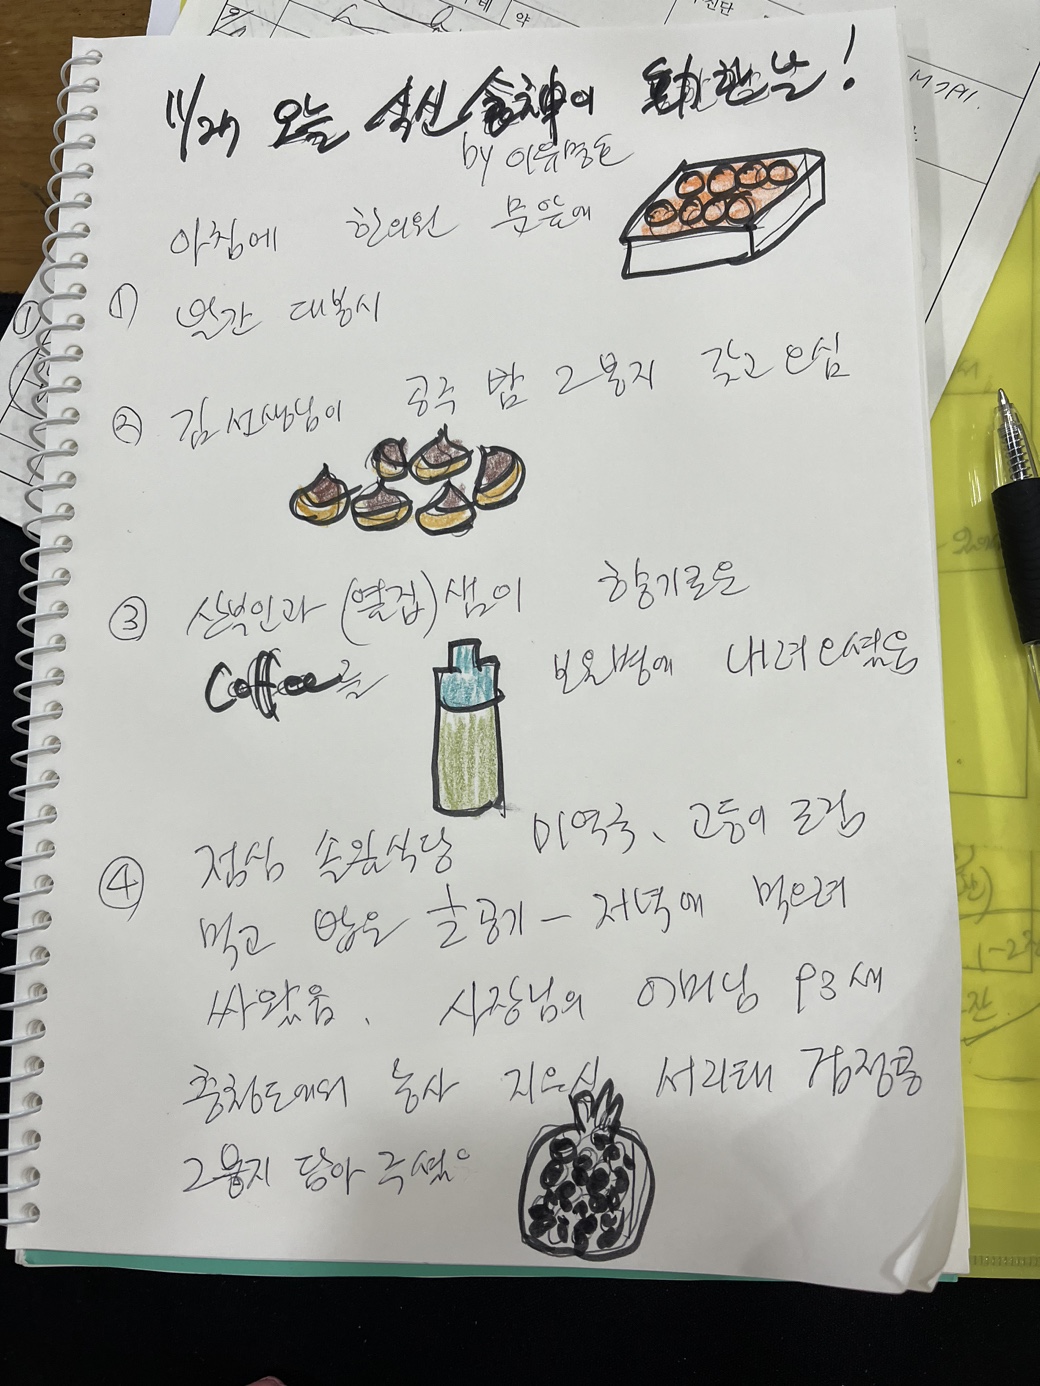 11/27 오늘 식신 食神이 출한 날!
by 이유명호
아침에 한의원 문앞에
① 빨간 대봉시
② 김선생님이 공주 밤 2봉지 갖고 오심
③ 산부인과 (옆집)샘이 향기로운
Coffee를 보온병에 내려오셨음
④ 점심 손맛식당 미역국、고등어 조림
먹고 남은 글공기 – 저녁에 먹으려
싸왔음. 사장님의 어머님 93세
충청도에서 농사 지으신 서리태 검정콩
2봉지 담아 주셨으
약
진단